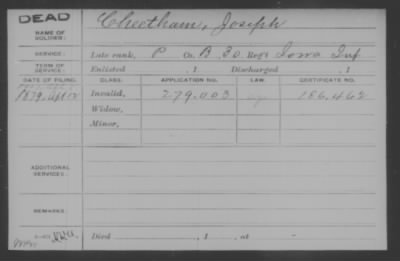 DEAD
NAME OF SOLDIER: Cheetham, Joseph
SERVICE: Late rank, P Co. B 30 Reg't Iowa Inf.
TERM OF SERVICE: Enlisted , 1 Discharged , 1
DATE OF FILING. CLASS. APPLICATION NO. LAW. CERTIFICATE NO.
1879, Invalid, 279.003 186.462
Widow,
Minor,
ADDITIONAL SERVICES:
REMARKS:
Died , 1 , at